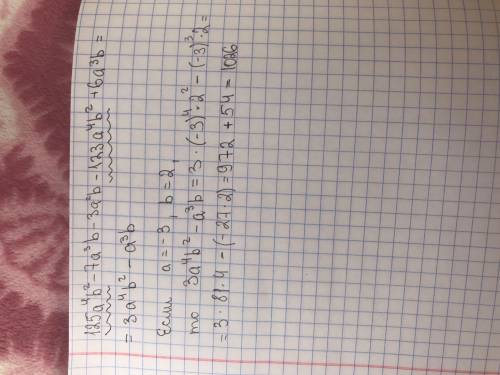 125a⁴b² - 7a³b - 3a⁴b - 123a⁴b² + 6a³b =
= 3a⁴b² - a³b
Если a = -3, b = 2,
то 3a⁴b² - a³b = 3 · (-3)⁴ · 2² - (-3)³ · 2 =
= 3 · 81 · 4 - (-27 · 2) = 972 + 54 = 1026